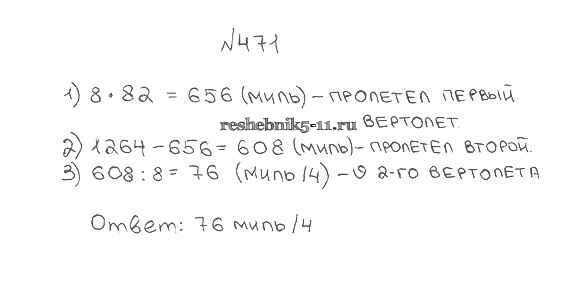 №471
1) 8 • 82 = 656 (миль) – пролетел первый
reshebnik5-11.ru вертолет.
2) 1264 – 656 = 608 (миль) – пролетел второй.
3) 608 : 8 = 76 (миль/ч) – υ 2-го вертолета
Ответ: 76 миль/ч